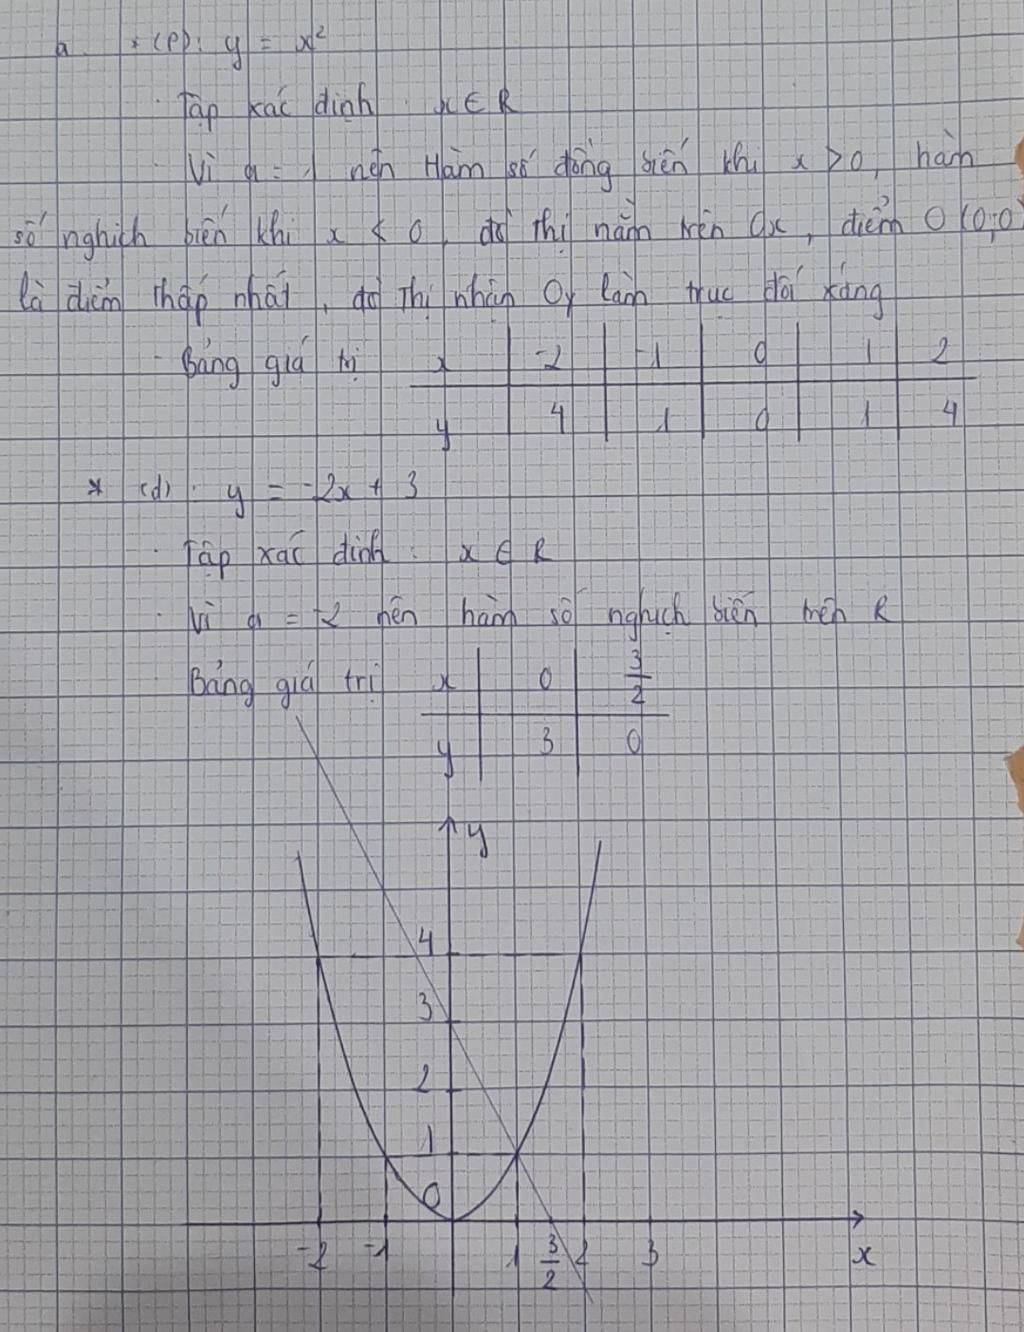 a. * (P): y = x²
· Tập xác định : x ∈ R
· Vì a = 1 nên Hàm số đồng biến khi x > 0, hàm
số nghịch biến khi x < 0, đồ thị nằm trên Ox, điểm O (0;0)
là điểm thấp nhất, đồ thị nhận Oy làm trục đối xứng
- Bảng giá trị x -2 -1 0 1 2
y 4 1 0 1 4
* (d): y = -2x + 3
· Tập xác định : x ∈ R
· Vì a = -2 nên hàm số nghịch biến trên R
Bảng giá trị x 0 3/2
y 3 0
y
4
3
2
1
0
-2 -1 1 3/2 2 3 x